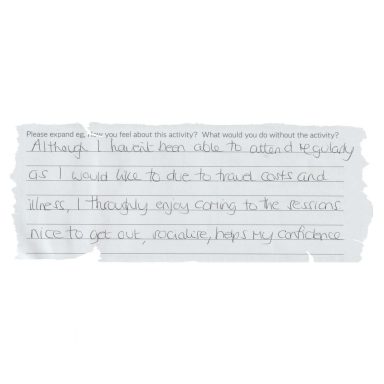 Please expand eg, How you feel about this activity? What would you do without the activity?
Although I haven't been able to attend regularly
as I would like to due to travel costs and
illness, I throughly enjoy coming to the sessions
nice to get out, socialise, helps my confidence